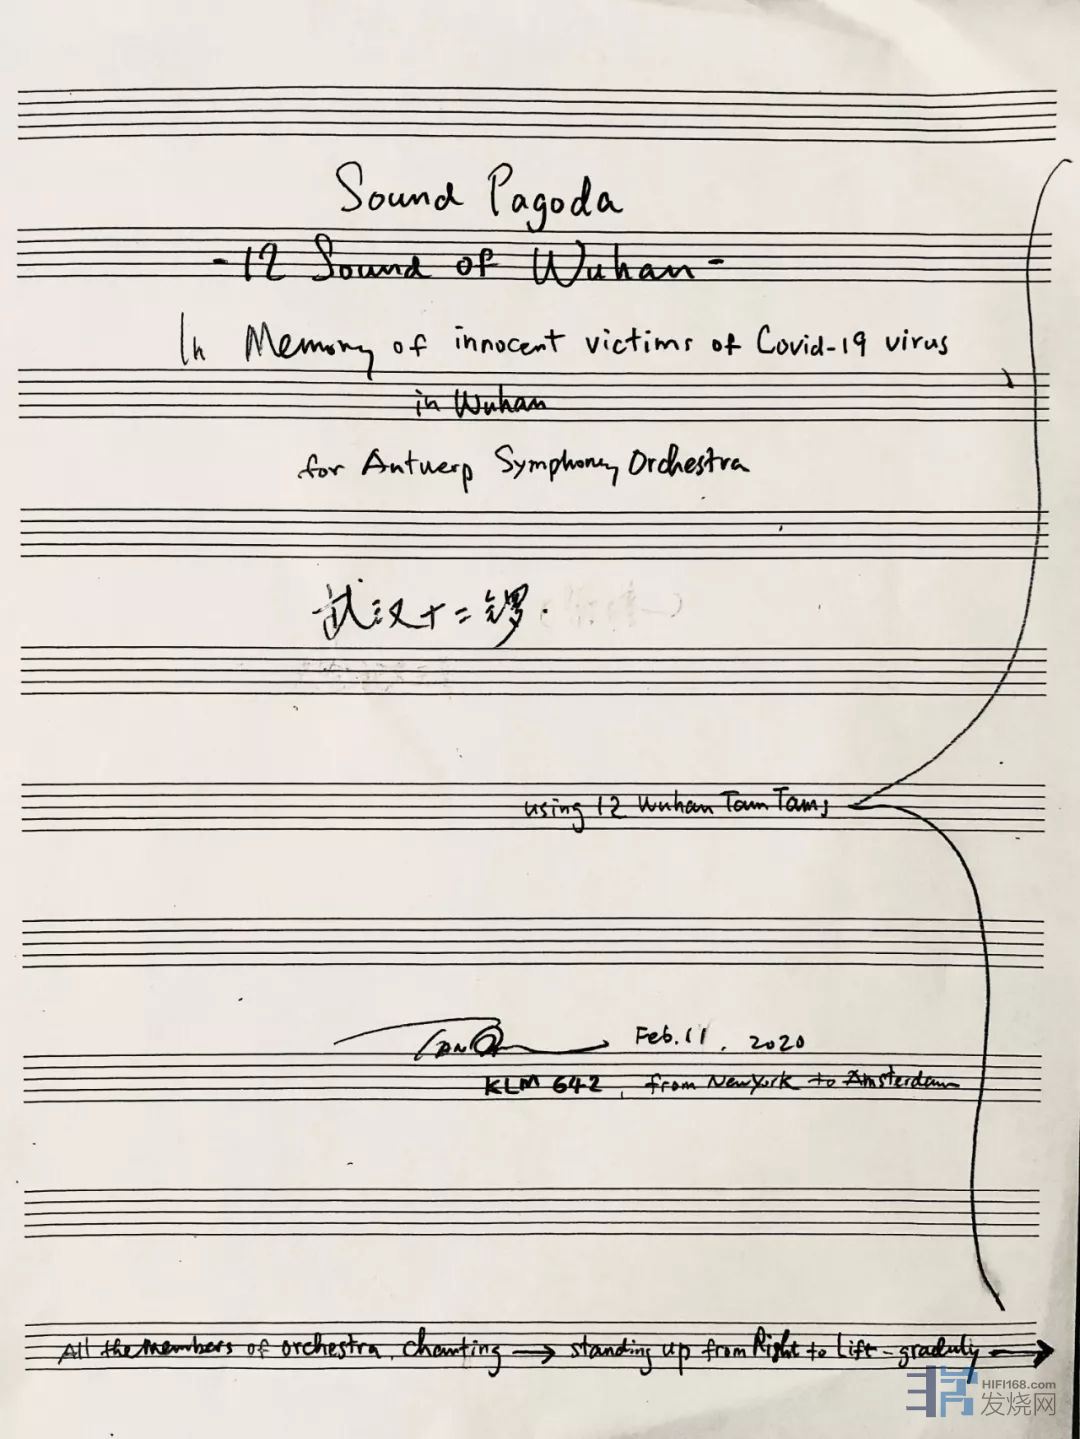 Sound Pagoda
-12 Sound of Wuhan-
In Memory of innocent victims of Covid-19 virus
in Wuhan
for Antwerp Symphony Orchestra
武汉十二锣.
using 12 Wuhan Tam Tams
TAN Feb. 11, 2020
KLM 642, from New York to Amsterdam
All the members of orchestra. Chanting → standing up from Right to Lift - graduly →
HIFI168.com
发烧网